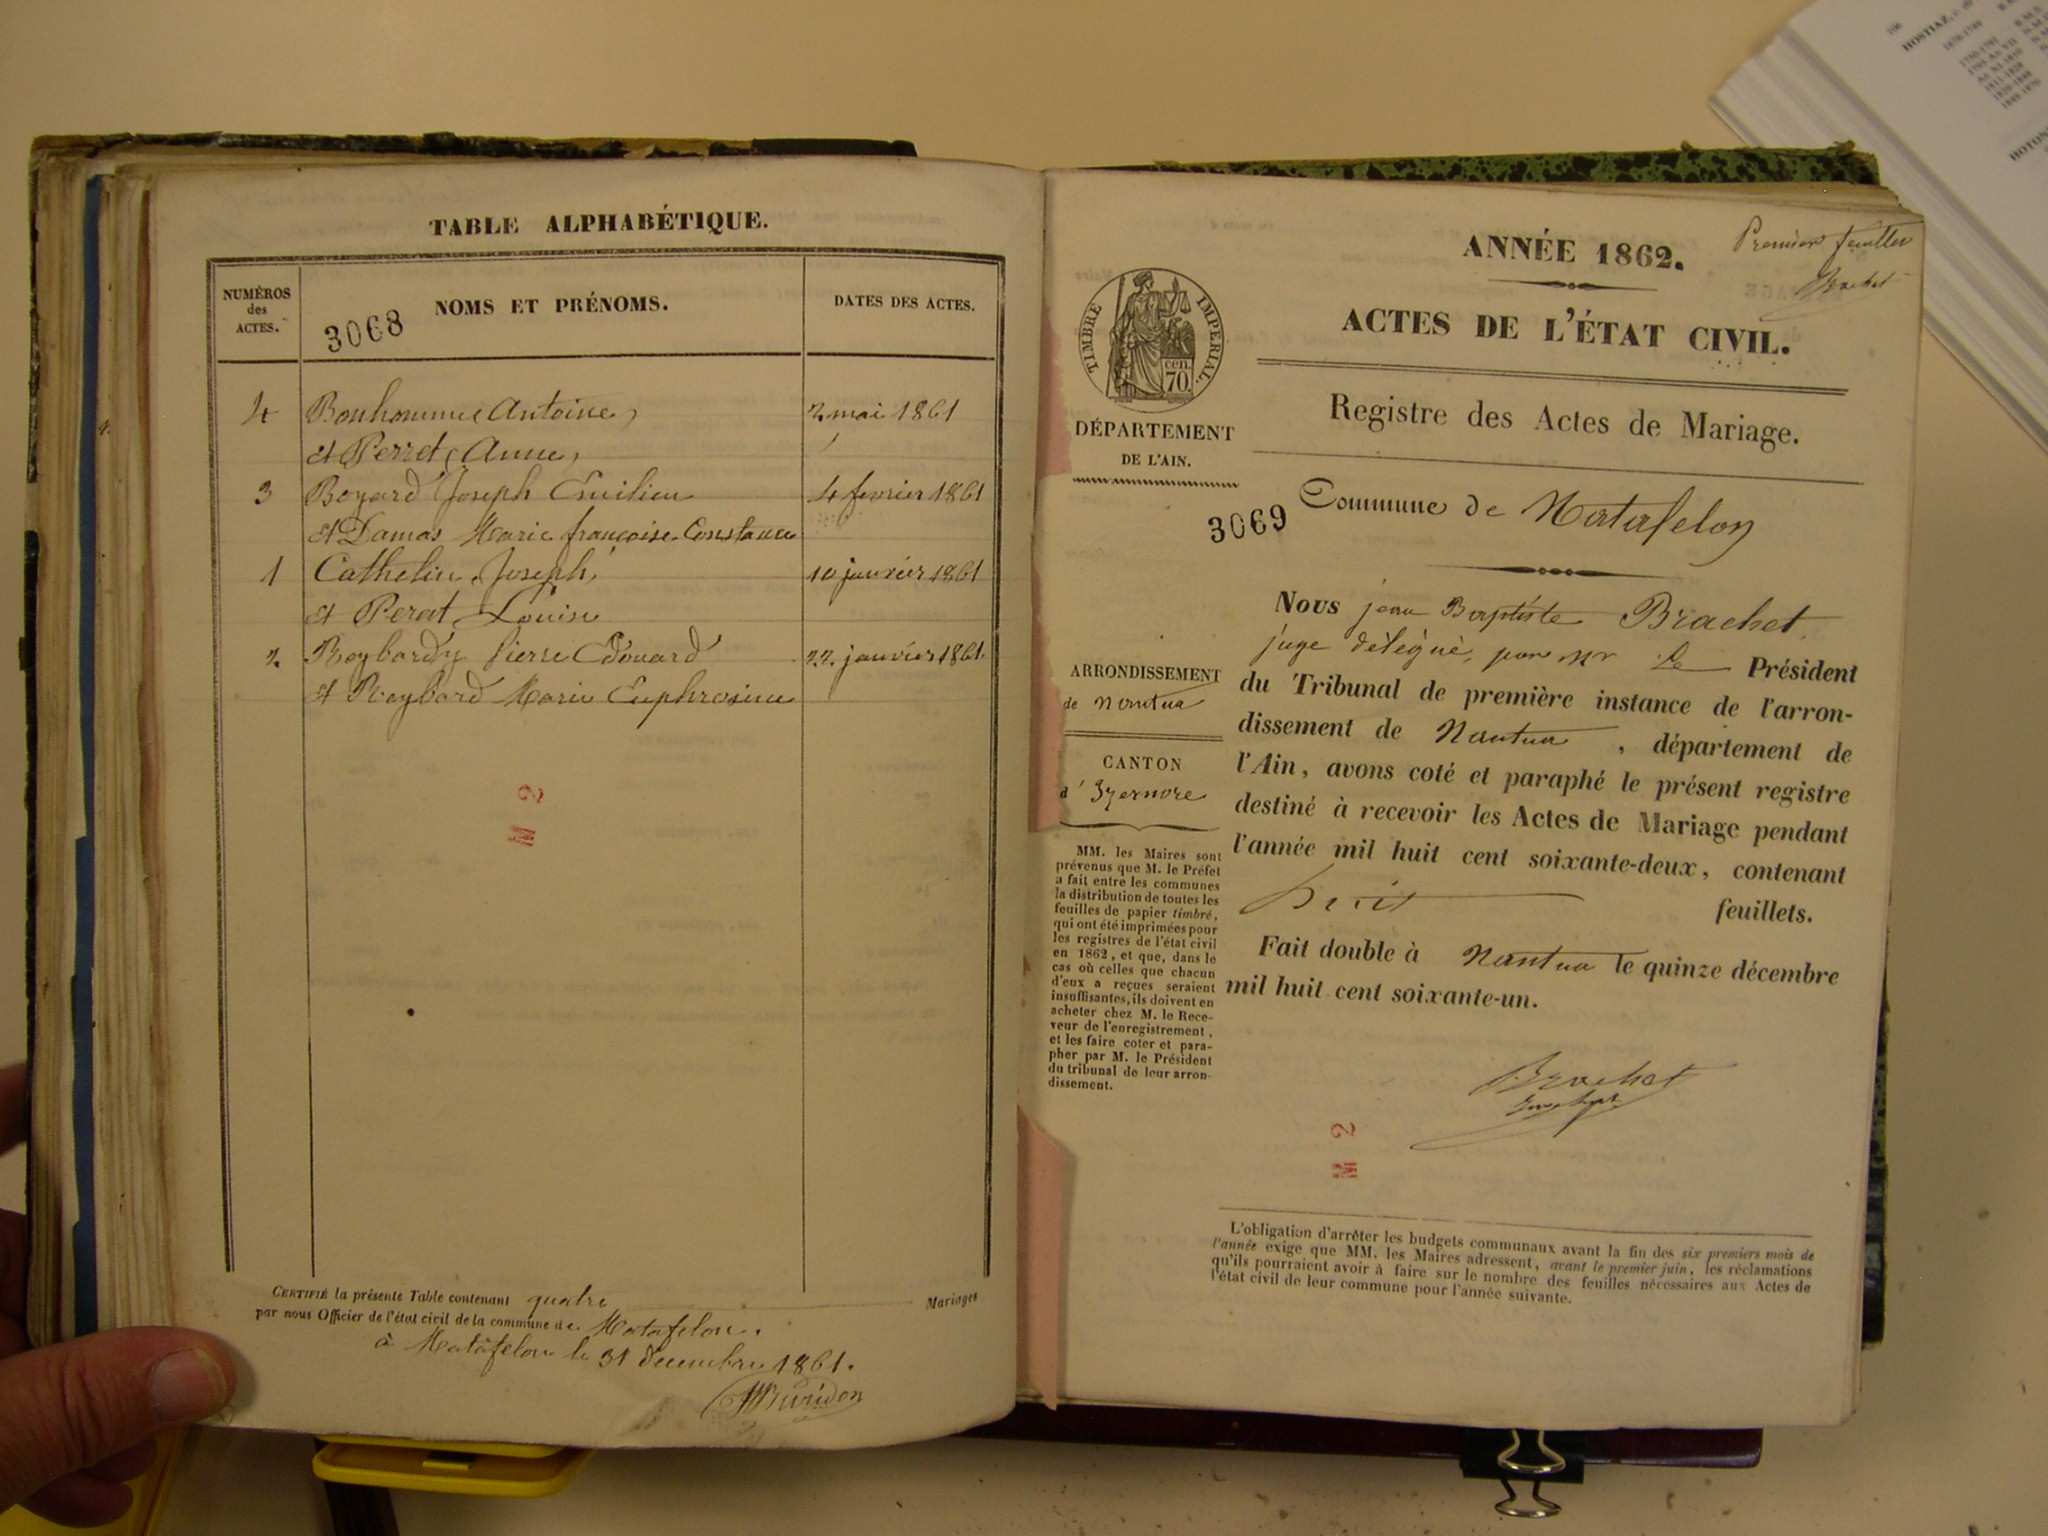 TABLE ALPHABÉTIQUE.
NUMÉROS
des
ACTES.
NOMS ET PRÉNOMS.
DATES DES ACTES.
3068
4 Bonhomme Antoine, 2 mai 1861
et Perret Anne,
3 Boyard Joseph Emilien 4 fevrier 1861
et Damas Marie françoise Constance
1 Cathelin Joseph 10 janvier 1861
et Perat Louise
2 Reybard Pierre Edouard 22 janvier 1861
et Reybard Marie Euphrosine
M 2
CERTIFIÉ la présente Table contenant quatre Mariages
par nous Officier de l'état civil de la commune de Matafelon.
à Matafelon le 31 decembre 1861.
Buridon
Premier feuillet
Brachet
ANNÉE 1862.
ACTES DE L'ÉTAT CIVIL.
Registre des Actes de Mariage.
TIMBRE IMPÉRIAL.
cen.
70.
DÉPARTEMENT
DE L'AIN.
Commune de Matafelon
3069
Nous jean Baptiste Brachet
juge délégué, par mr Le Président
du Tribunal de première instance de l'arron-
dissement de Nantua, département de
l'Ain, avons coté et paraphé le présent registre
destiné à recevoir les Actes de Mariage pendant
l'année mil huit cent soixante-deux, contenant
huit feuillets.
Fait double à Nantua le quinze décembre
mil huit cent soixante-un.
Brachet
M 2
ARRONDISSEMENT
de Nantua
CANTON
d' Izernore
MM. les Maires sont
prévenus que M. le Préfet
a fait entre les communes
la distribution de toutes les
feuilles de papier timbré,
qui ont été imprimées pour
les registres de l'état civil
en 1862, et que, dans le
cas où celles que chacun
d'eux a reçues seraient
insuffisantes, ils doivent en
acheter chez M. le Rece-
veur de l'enregistrement,
et les faire coter et para-
pher par M. le Président
du tribunal de leur arron-
dissement.
L'obligation d'arrêter les budgets communaux avant la fin des six premiers mois de
l'année exige que MM. les Maires adressent, avant le premier juin, les réclamations
qu'ils pourraient avoir à faire sur le nombre des feuilles nécessaires aux Actes de
l'état civil de leur commune pour l'année suivante.
196
HOSTIAZ,